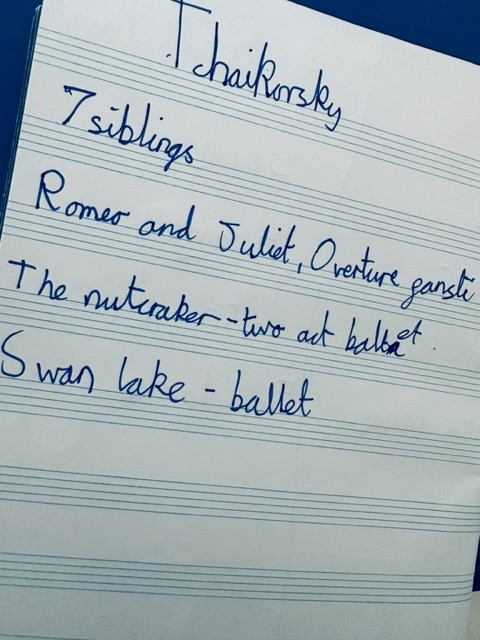 Tchaikovsky
7 siblings
Romeo and Juliet, Overture
The nutcraker - two act ballet.
Swan lake - ballet